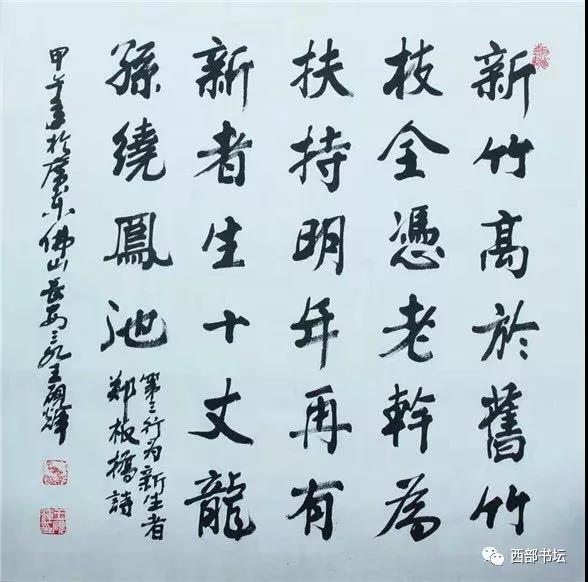 新竹高於舊竹
枝全憑老幹為
扶持明年再有
新者生十丈龍
孫繞鳳池
第三行为新生者
郑板橋詩
甲午年於廣東佛山長安王輝
西部书坛